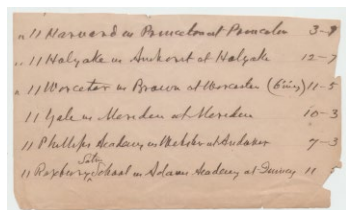 " 11 Harvard vs Princeton at Princeton 3-9
" 11 Holyoke vs Amherst at Holyoke 12-7
" 11 Worcester vs Brown at Worcester (6 inngs) 11-5
11 Yale vs Meriden at Meriden 10-3
11 Phillips Academy vs Webster at Andover 7-3
11 Roxbury Latin School vs Adams Academy at Quincy 11